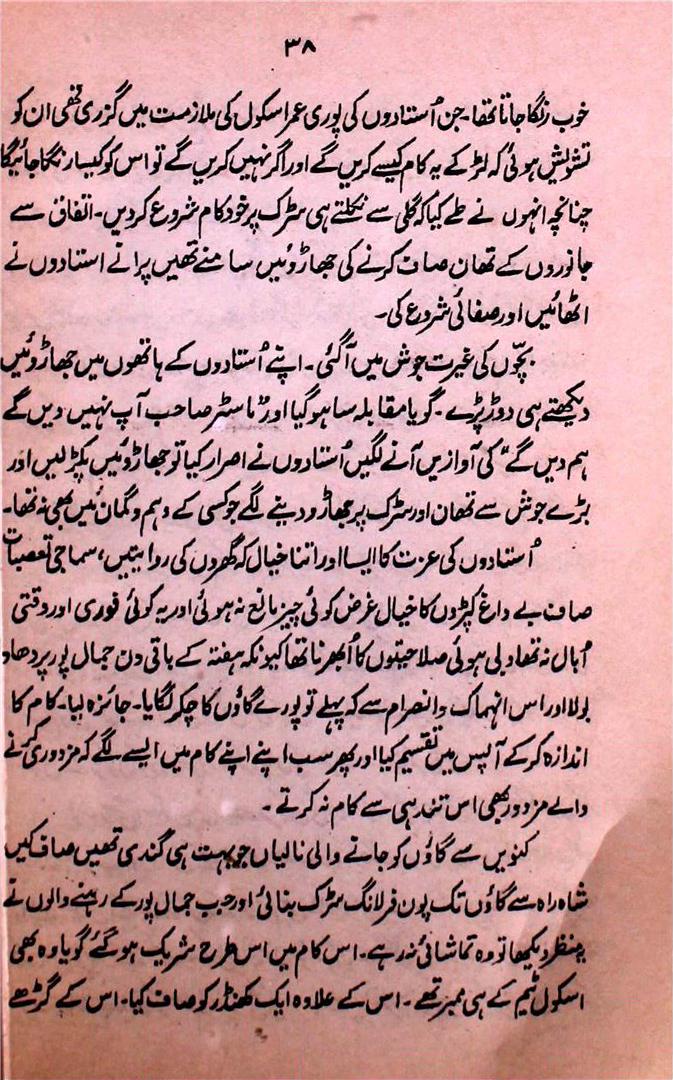 ۳۸
خوب رنگا جاتا تھا۔ جن اُستادوں کی پوری عمر اسکول کی ملازمت میں گزری تھی ان کو
تشویش ہوئی کہ لڑکے یہ کام کیسے کریں گے اور اگر نہیں کریں گے تو اس کو کیسا رنگا جائیگا
چنانچہ انہوں نے طے کیا کہ گلی سے نکلتے ہی سڑک پر خود کام شروع کردیں۔ اتفاق سے
جانوروں کے تھان صاف کرنے کی جھاڑوئیں سامنے تھیں پرانے استادوں نے
اٹھائیں اور صفائی شروع کی۔
بچّوں کی غیرت جوش میں آگئی۔ اپنے اُستادوں کے ہاتھوں میں جھاڑوئیں
دیکھتے ہی دوڑ پڑے۔ گویا مقابلہ سا ہوگیا اور "ماسٹر صاحب آپ نہیں دیں گے
ہم دیں گے" کی آوازیں آنے لگیں اُستادوں نے اصرار کیا تو جھاڑوئیں پکڑ لیں اور
بڑے جوش سے تھان اور سڑک پر جھاڑو دینے لگے جو کسی کے وہم وگمان میں بھی نہ تھا۔
اُستادوں کی عزت کا ایسا اور اتنا خیال کہ گھروں کی روایتیں، سماجی تعصبات
صاف بے داغ کپڑوں کا خیال غرض کوئی چیز مانع نہ ہوئی اور یہ کوئی فوری اور وقتی
اُبال نہ تھا دبی ہوئی صلاحیتوں کا اُبھرنا تھا کیونکہ ہفتہ کے باقی دن جمال پور پر دھاوا
بولا اور اس انہماک وانصرام سے کہ پہلے تو پورے گاؤں کا چکر لگایا۔ جائزہ لیا۔ کام کا
اندازہ کرکے آپس میں تقسیم کیا اور پھر سب اپنے اپنے کام میں ایسے لگے کہ مزدوری کرنے
والے مزدور بھی اس تندہی سے کام نہ کرتے۔
کنویں سے گاؤں کو جانے والی نالیاں جو بہت ہی گندی تھیں صاف کیں
شاہ راہ سے گاؤں تک پون فرلانگ سڑک بنائی اور جب جمال پور کے رہنے والوں نے
یہ منظر دیکھا تو وہ تماشائی نہ رہے۔ اس کام میں اس طرح شریک ہوگئے گویا وہ بھی
اسکول ٹیم کے ہی ممبر تھے۔ اس کے علاوہ ایک کھنڈر کو صاف کیا۔ اس کے گڑھے